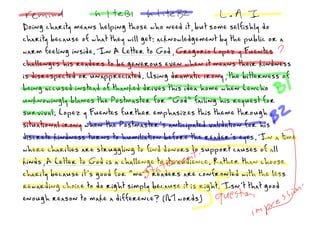 Doing charity means helping those who need it, but some selfishly do
charity because of what they will get: acknowledgement by the public or a
warm feeling inside. In A Letter to God, Gregorio Lopez y Fuentes ?
challenges his readers to be generous even when it means their kindness
is disrespected or unappreciated. Using dramatic irony, the bitterness of
being accused instead of thanked drives this idea home when Lencho B1
unknowingly blames the Postmaster for "God" failing his request for
survival. Lopez y Fuentes further emphasizes this theme through B2
situational irony when the Postmaster's anticipated validation for his
discrete kindness turns to humiliation before the reader's eyes. In a time
where charities are struggling to find donors to support causes of all
kinds, A Letter to God is a challenge to its audience. Rather than choose
charity because it's good for "me", readers are confronted with the less
rewarding choice to do right simply because it is right. Isn't that good
enough reason to make a difference? (167 words)
impression